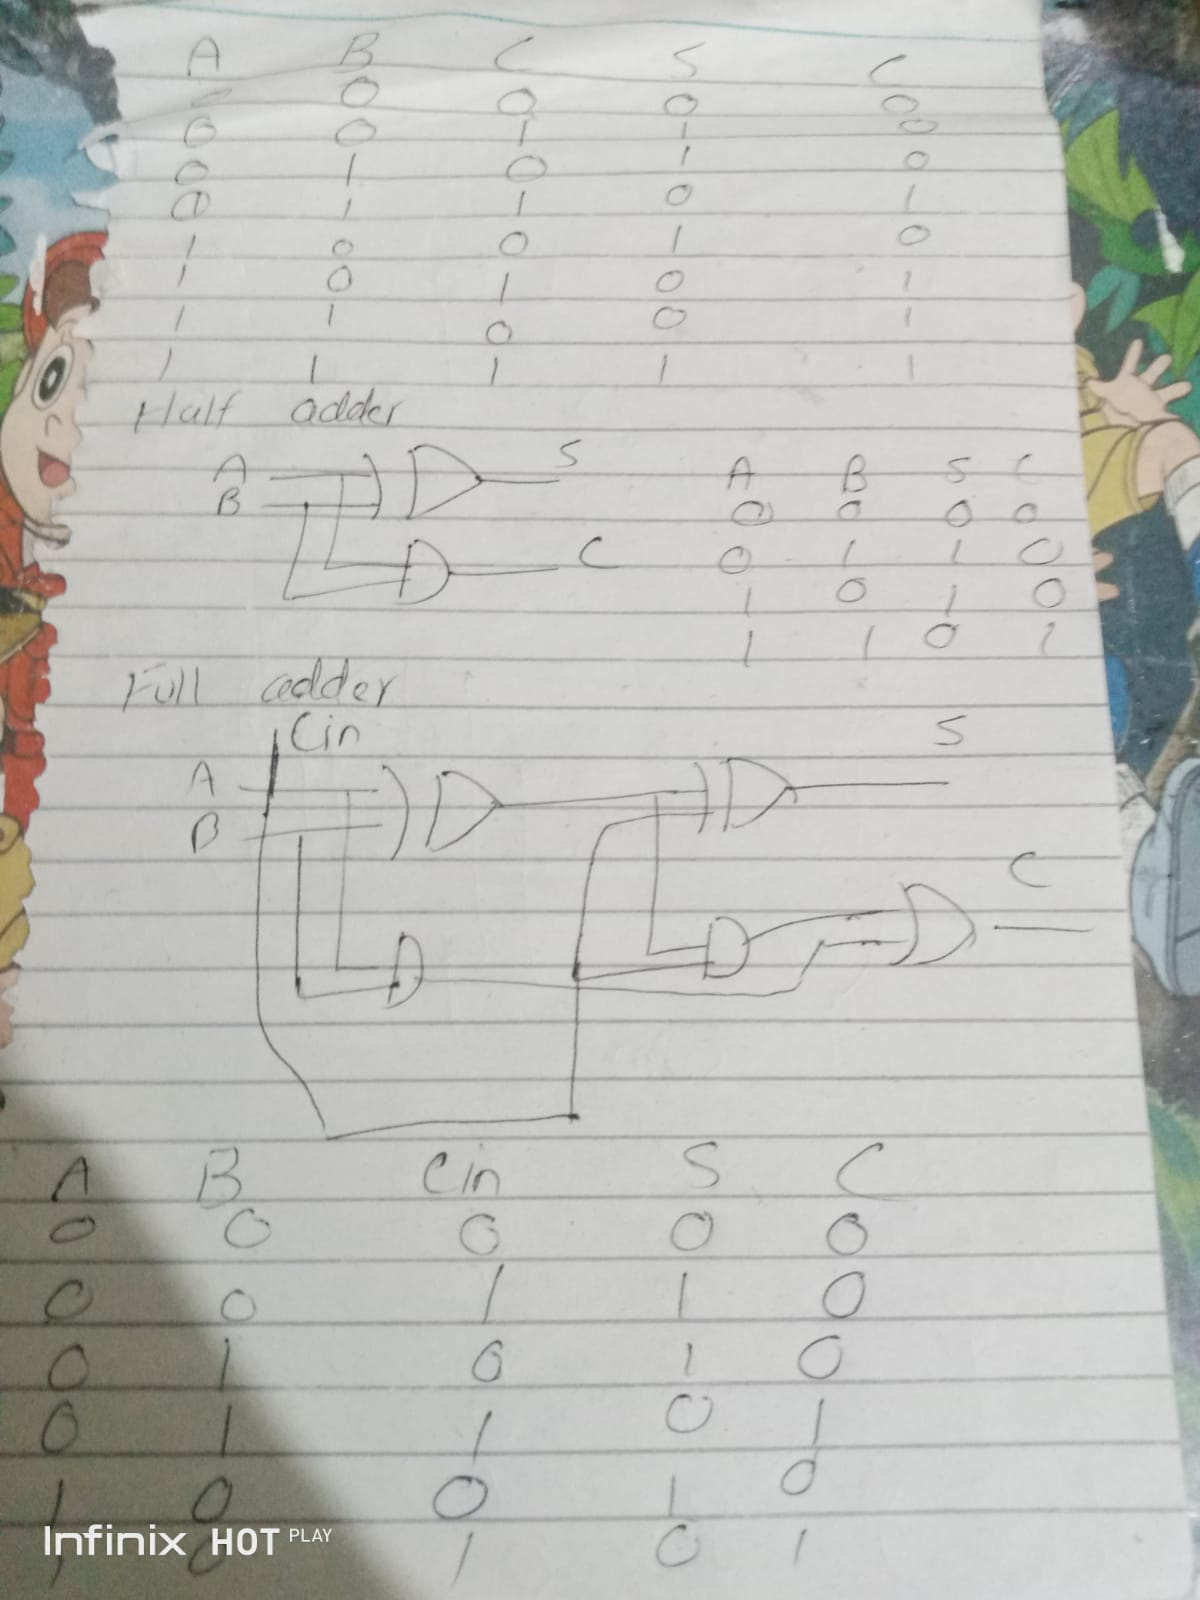 A B C S C
0 0 0 0 0
0 0 1 1 0
0 1 0 1 0
0 1 1 0 1
1 0 0 1 0
1 0 1 0 1
1 1 0 0 1
1 1 1 1 1
Half adder
A S
B
C
A B S C
0 0 0 0
0 1 1 0
1 0 1 0
1 1 0 1
Full adder
Cin
A S
B
C
A B Cin S C
0 0 0 0 0
0 0 1 1 0
0 1 0 1 0
0 1 1 0 1
1 0 0 1 0
1 0 1 0 1
Infinix HOT PLAY